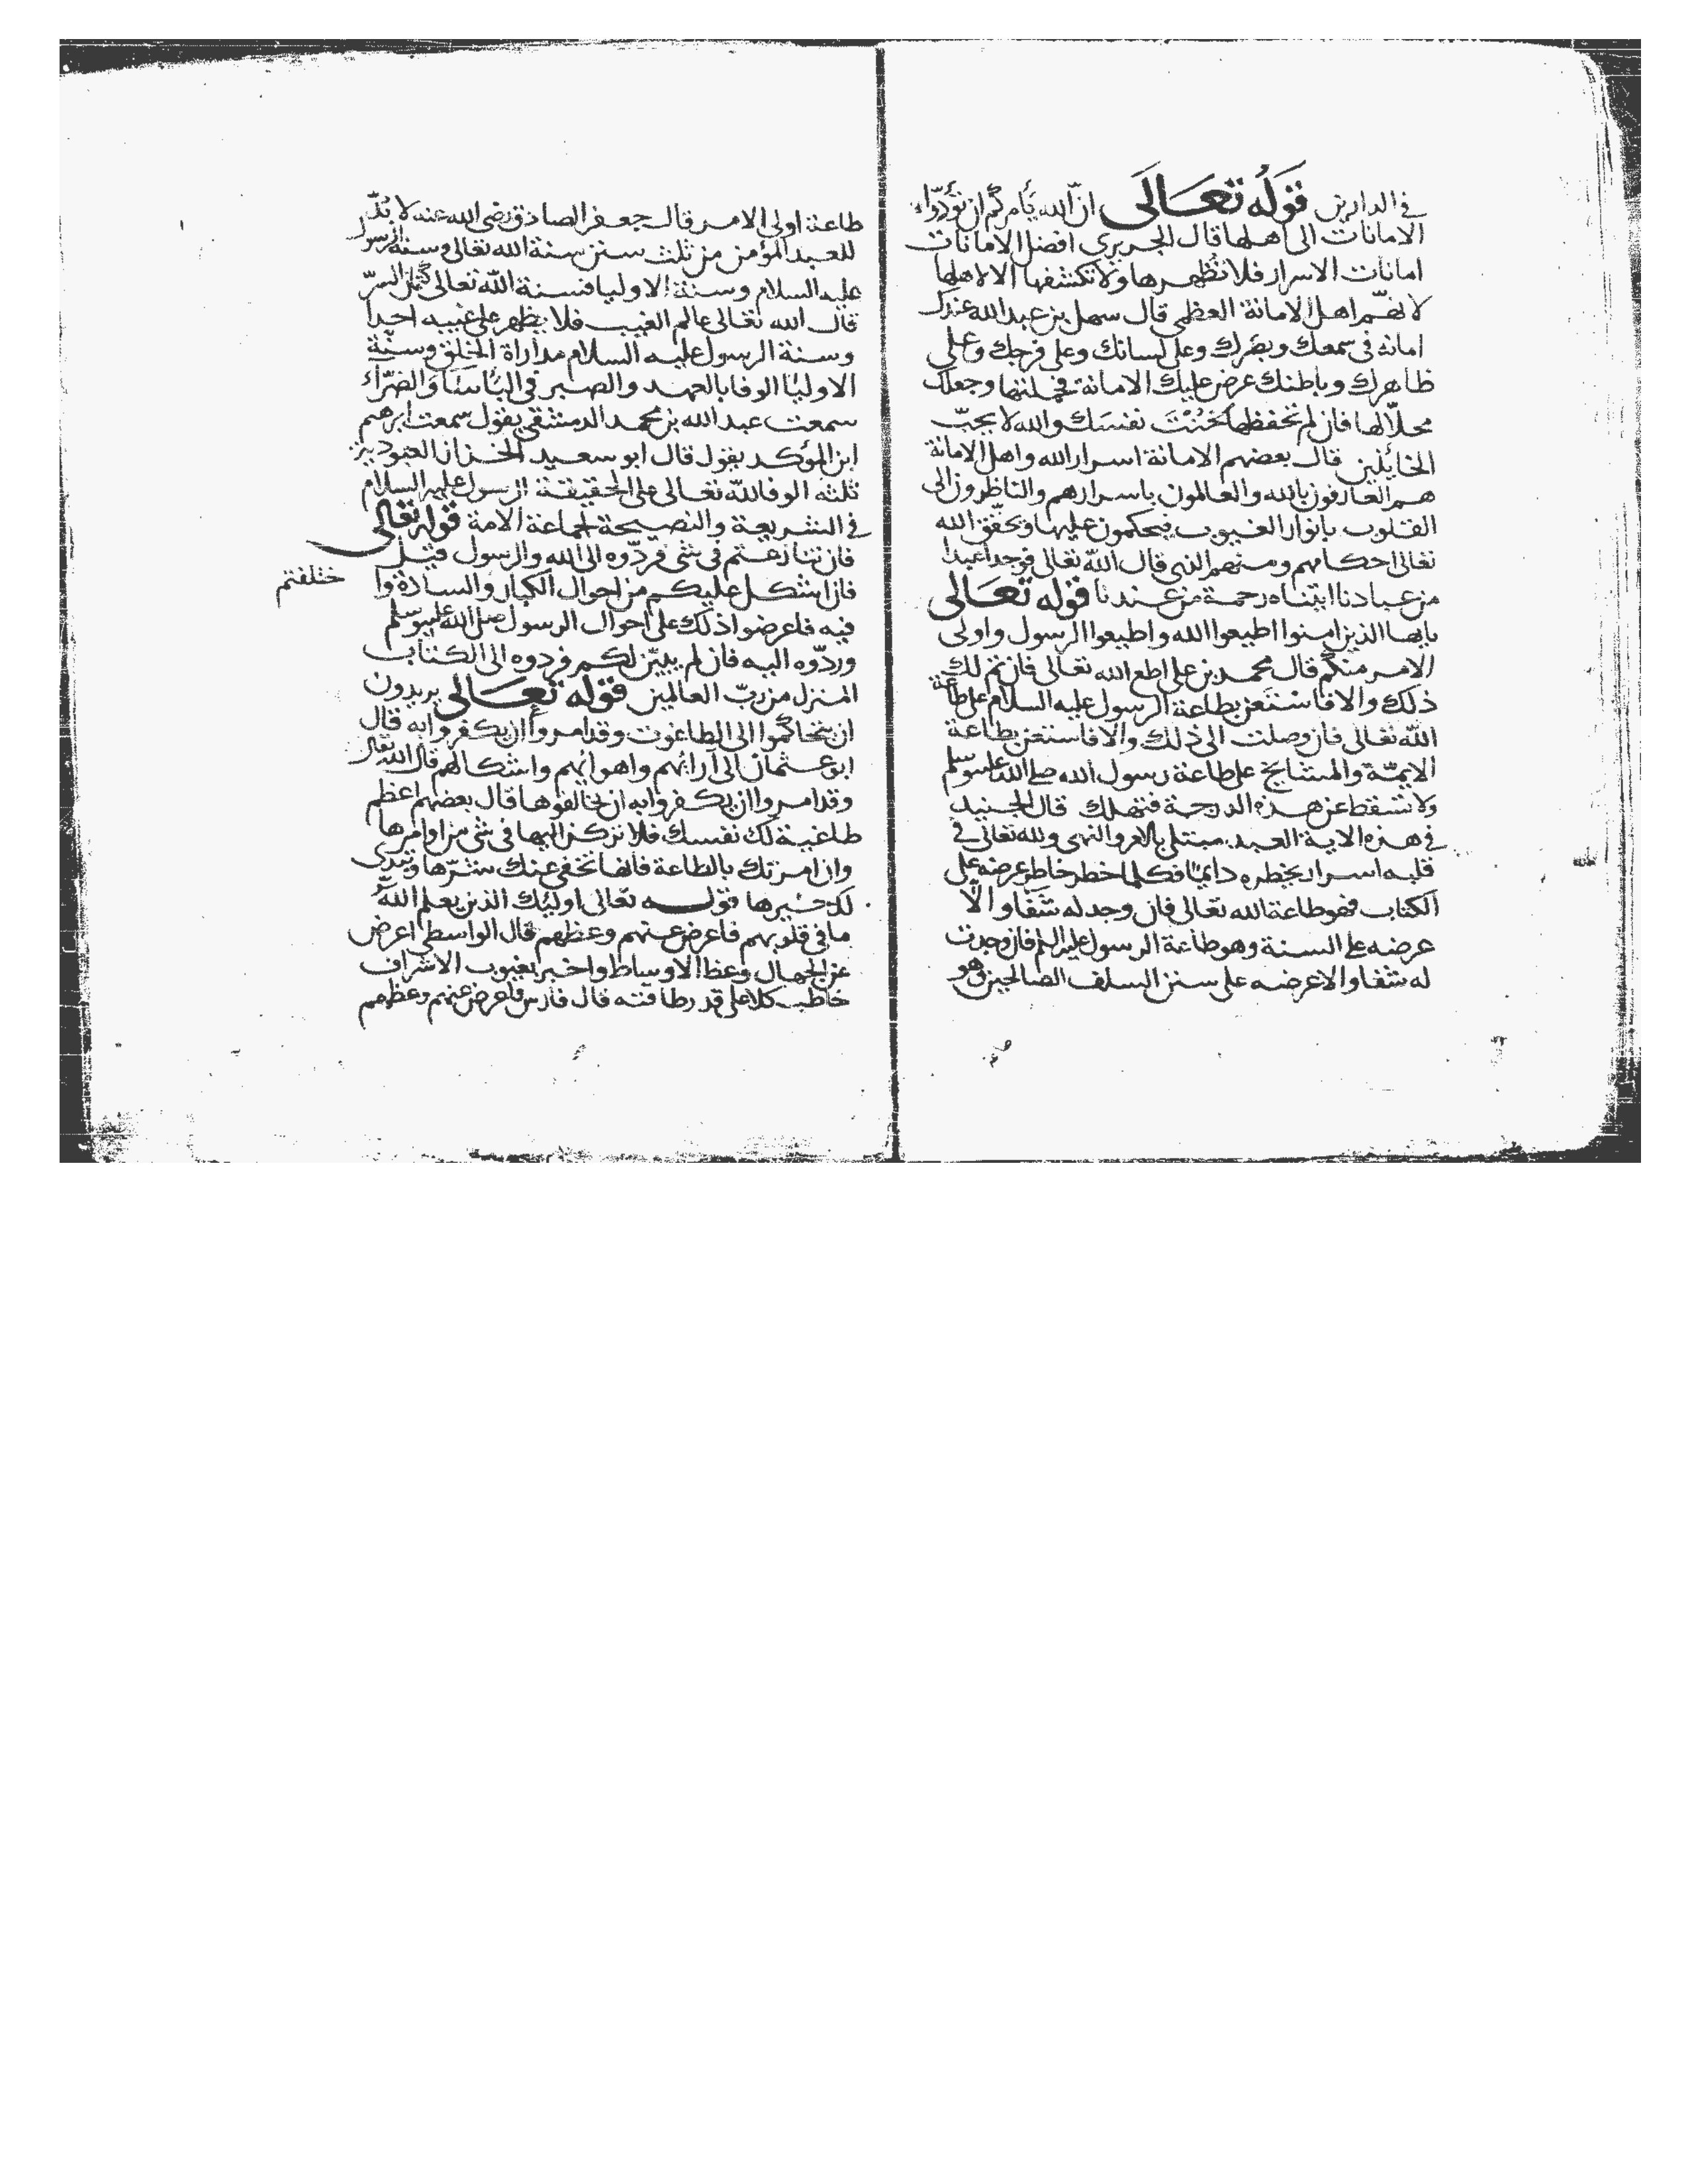 في الدارين قوله تعالى ان الله يأمركم ان تؤدوا
الامانات الى اهلها قال الجريري افضل الامانات
امانات الاسرار فلا تظهرها ولا تكشفها الا لاهلها
لانهم اهل الامانة العظمى قال سهل بن عبد الله عندك
امانه فى سمعك وبصرك وعلى لسانك وعلى فرجك وعلى
ظاهرك وباطنك عرض عليك الامانة فحملتها وجعلك
محلا لها فان لم تحفظها خنت نفسك والله لا يحب
الخائنين قال بعضهم الامانة اسرار الله واهل الامانة
هم العارفون بالله والعالمون باسرارهم والناظرون الى
القلوب بانوار الغيوب فيحكمون عليها وتحقق الله
تعالى احكامهم ومنهم الذى قال الله تعالى فوجدا عبدا
من عبادنا اتيناه رحمة من عندنا قوله تعالى
يايها الذين امنوا اطيعوا الله واطيعوا الرسول واولى
الامر منكم قال محمد بن على اطع الله تعالى فان تم لك
ذلك والا فاستعن بطاعة الرسول عليه السلام على طاعة
الله تعالى فان وصلت الى ذلك والا فاستعن بطاعة
الايمة والمشايخ على طاعة رسول الله صلى الله عليه وسلم
ولا تسقط عن هذه الدرجة فتهلك قال الجنيد
في هذه الاية العبد مبتلى بالامر والنهى ولله تعالى في
قلبه اسرار يخطره دايما فكلما خطر خاطر عرضه على
الكتاب فهو طاعة الله تعالى فان وجد له شفا والا
عرضه على السنة وهو طاعة الرسول عليه السلم فان وجدت
له شفا والا عرضه على سنن السلف الصالحين وهو
طاعة اولى الامر قال جعفر الصادق رضى الله عنه لا بد
للعبد المؤمن من ثلث سنن سنة الله تعالى وسنة الرسول
عليه السلام وسنة الاوليا فسنة الله تعالى كتمان السر
قال الله تعالى عالم الغيب فلا يظهر على غيبه احدا
وسنة الرسول عليه السلام مداراة الخلق وسنة
الاوليا الوفا بالعهد والصبر في الباسا والضراء
سمعت عبد الله بن محمد الدمشقى يقول سمعت ابرهيم
ابن المؤكد يقول قال ابو سعيد الخزاز العبودية
ثلثه الوفا لله تعالى على الحقيقة الرسول عليه السلام
في الشريعة والنصيحة لجماعة الامة قوله تعالى
فان تنازعتم فى شى فردوه الى الله والرسول قيل
فان اشكل عليكم من احوال الكبار والسادة وا
ختلفتم
فيه فاعرضوا ذلك على احوال الرسول صلى الله عليه وسلم
وردوه اليه فان لم يبين لكم فردوه الى الكتاب
المنزل من رب العالمين قوله تعالى يريدون
ان يتحاكموا الى الطاغوت وقد امروا ان يكفروا به قال
ابو عثمان الى آرائهم واهوائهم واشكالهم قال الله تعالى
وقد امروا ان يكفروا به ان يخالفوها قال بعضهم اعظم
طاغية لك نفسك فلا تركن اليها فى شى من اوامرها
وان امرتك بالطاعة فانها تخفى عنك شرها وتبدى
لك خيرها قوله تعالى اوليك الذين يعلم الله
ما فى قلوبهم فاعرض عنهم وعظهم قال الواسطى اعرض
عن الجهال وعظ الاوساط واخبر بغيوب الاشراف
خاطب كلا على قدر طاقته قال فارس فاعرض عنهم وعظهم